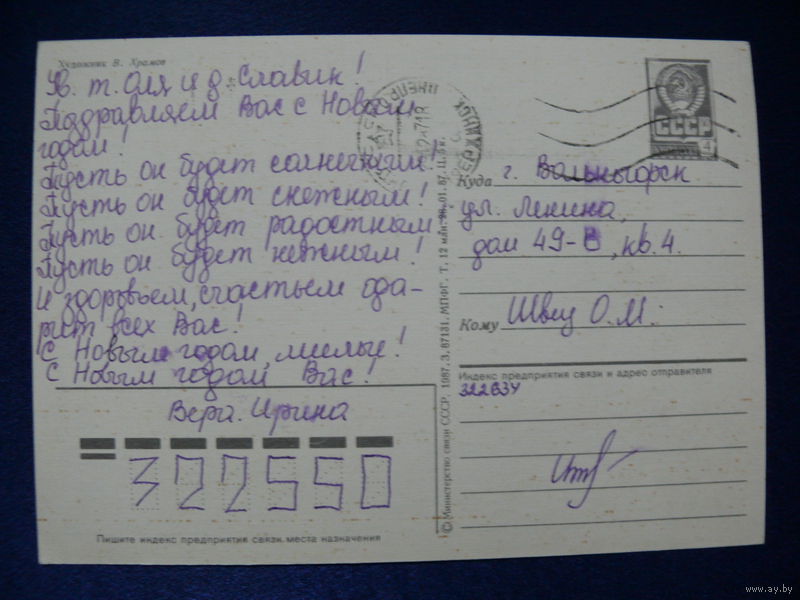 Художник В. Храмов
Ув. т. Оля и д. Славик!
Паздравляем Вас с Новым
годом!
Пусть он будет солнечным!
Пусть он будет снежным!
Пусть он будет радостным
Пусть он будет нежным!
И здоровьем, счастьем ода-
рит всех Вас!
С Новым годом, милые!
С Новым годом Вас!
Вера. Ирина
322550
Пишите индекс предприятия связи места назначения
© Министерство связи СССР. 1987. З. 87131. МПФГ. Т. 12 млн. 28.01.87. Ц. 5 к.
СССР
4
Куда г. Вольногорск
ул. Ленина,
дом 49-Б, кв. 4.
Кому Швец О.М.
Индекс предприятия связи и адрес отправителя
322634
www.ay.by